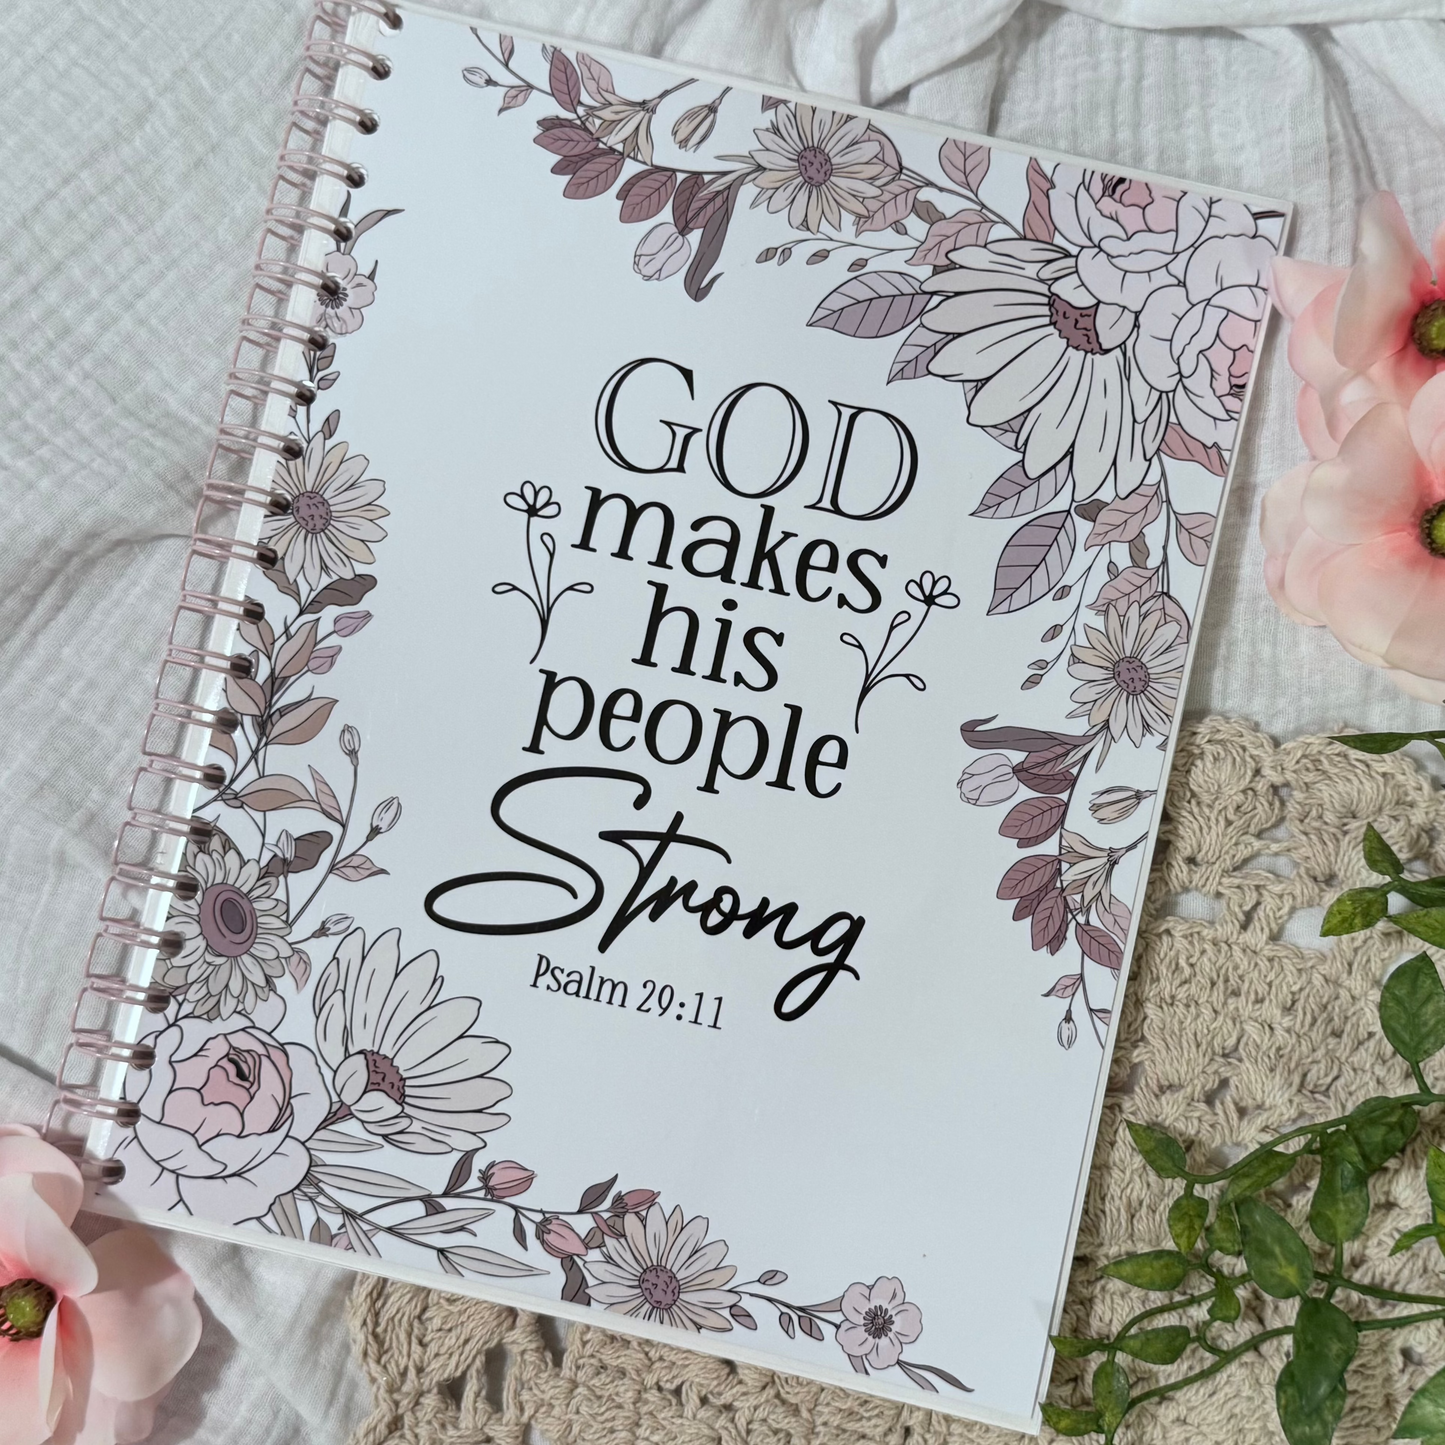 GOD
makes
his
people
Strong
Psalm 29:11